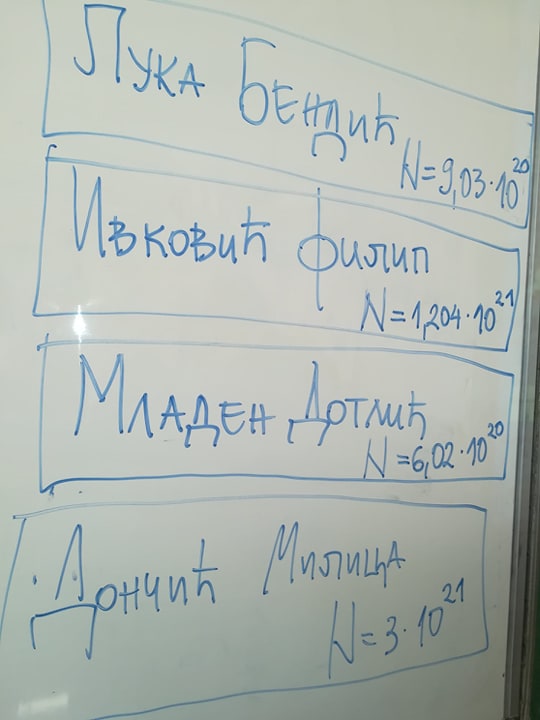 Лука Бендић
N=9,03·10²⁰
Ивковић Филип
N=1,204·10²¹
Младен Дотлић
N=6,02·10²⁰
Дончић Милица
N=3·10²¹